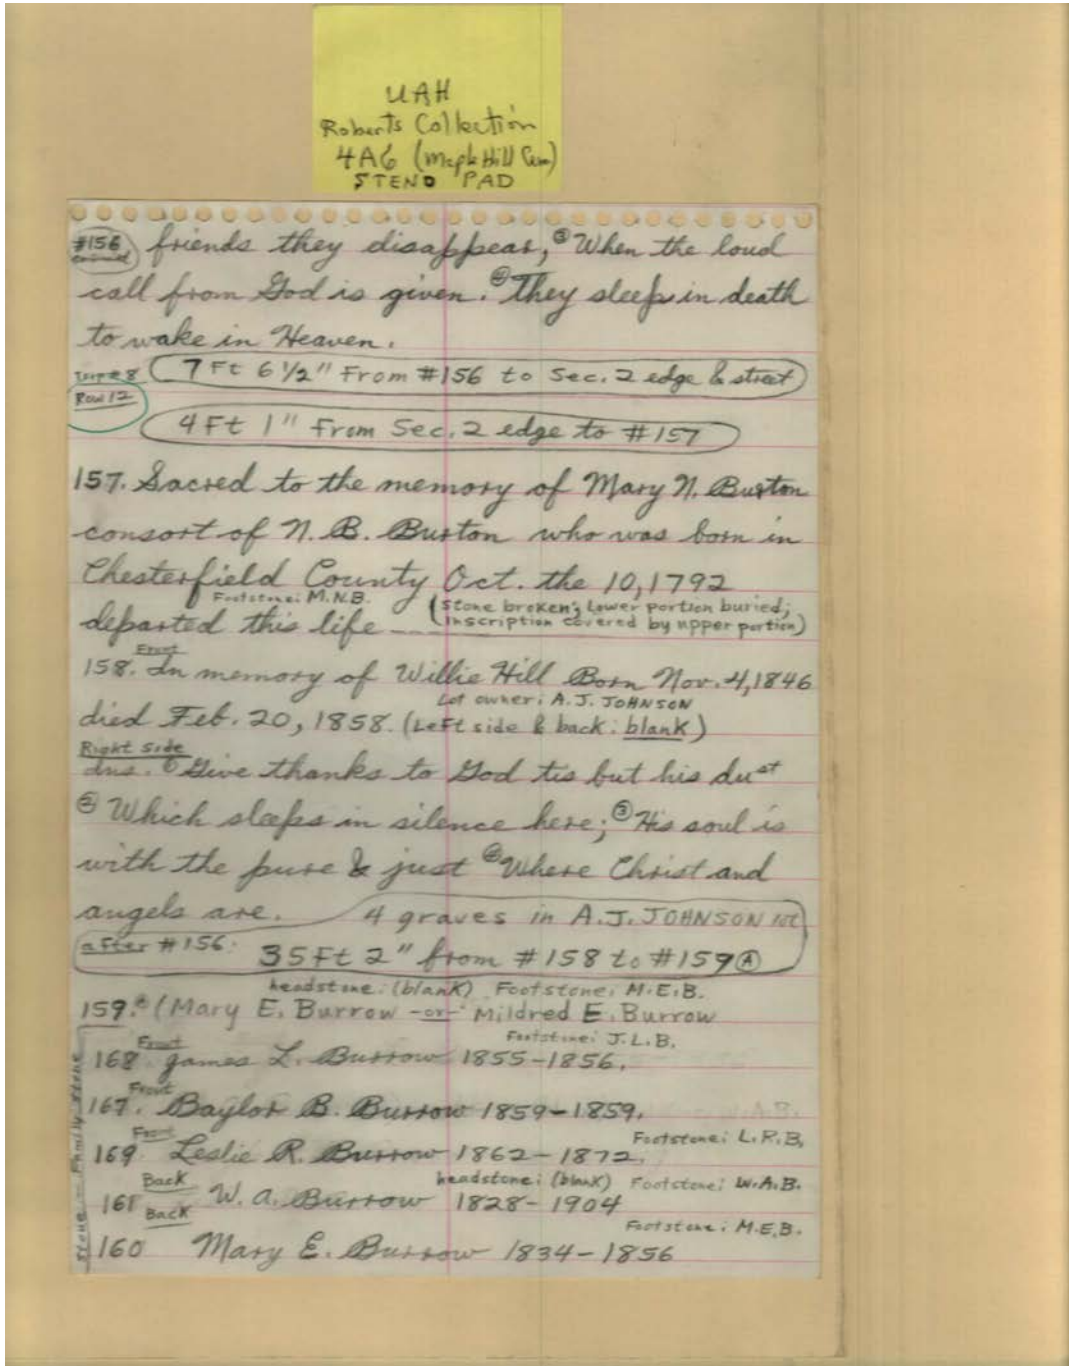 UAH
Roberts Collection
4A6 (Maple Hill Cem)
STENO PAD
#156 friends they disappear, ③ When the loud
call from God is given. ④ They sleep in death
to wake in Heaven.
7 Ft 6 1/2" From #156 to Sec. 2 edge & street
Row 12
4 Ft 1" from Sec. 2 edge to #157
157. Sacred to the memory of Mary N. Burton
consort of N. B. Burton who was born in
Chesterfield County Oct. the 10, 1792
Footstone: M.N.B. (Stone broken; Lower portion buried;
departed this life inscription covered by upper portion)
Front
158. In memory of Willie Hill Born Nov. 4, 1846
Lot owner: A.J. JOHNSON
died Feb. 20, 1858. (Left side & back: blank)
Right side
Ins. ① Give thanks to God tis but his dust
② Which sleeps in silence here; ③ His soul is
with the pure & just ④ Where Christ and
angels are. 4 graves in A.J. JOHNSON lot
after #156: 35 Ft 2" from #158 to #159 Ⓐ
headstone: (blank) Footstone: M.E.B.
159. (Mary E. Burrow -or- Mildred E. Burrow
Front Footstone: J.L.B.
168 James L. Burrow 1855-1856.
Front
167. Baylor B. Burrow 1859-1859.
Front Footstone: L.R.B.
169 Leslie R. Burrow 1862-1872.
Back headstone: (blank) Footstone: W.A.B.
161 W. A. Burrow 1828-1904
Back Footstone: M.E.B.
160 Mary E. Burrow 1834-1856
Stone - Family Stone